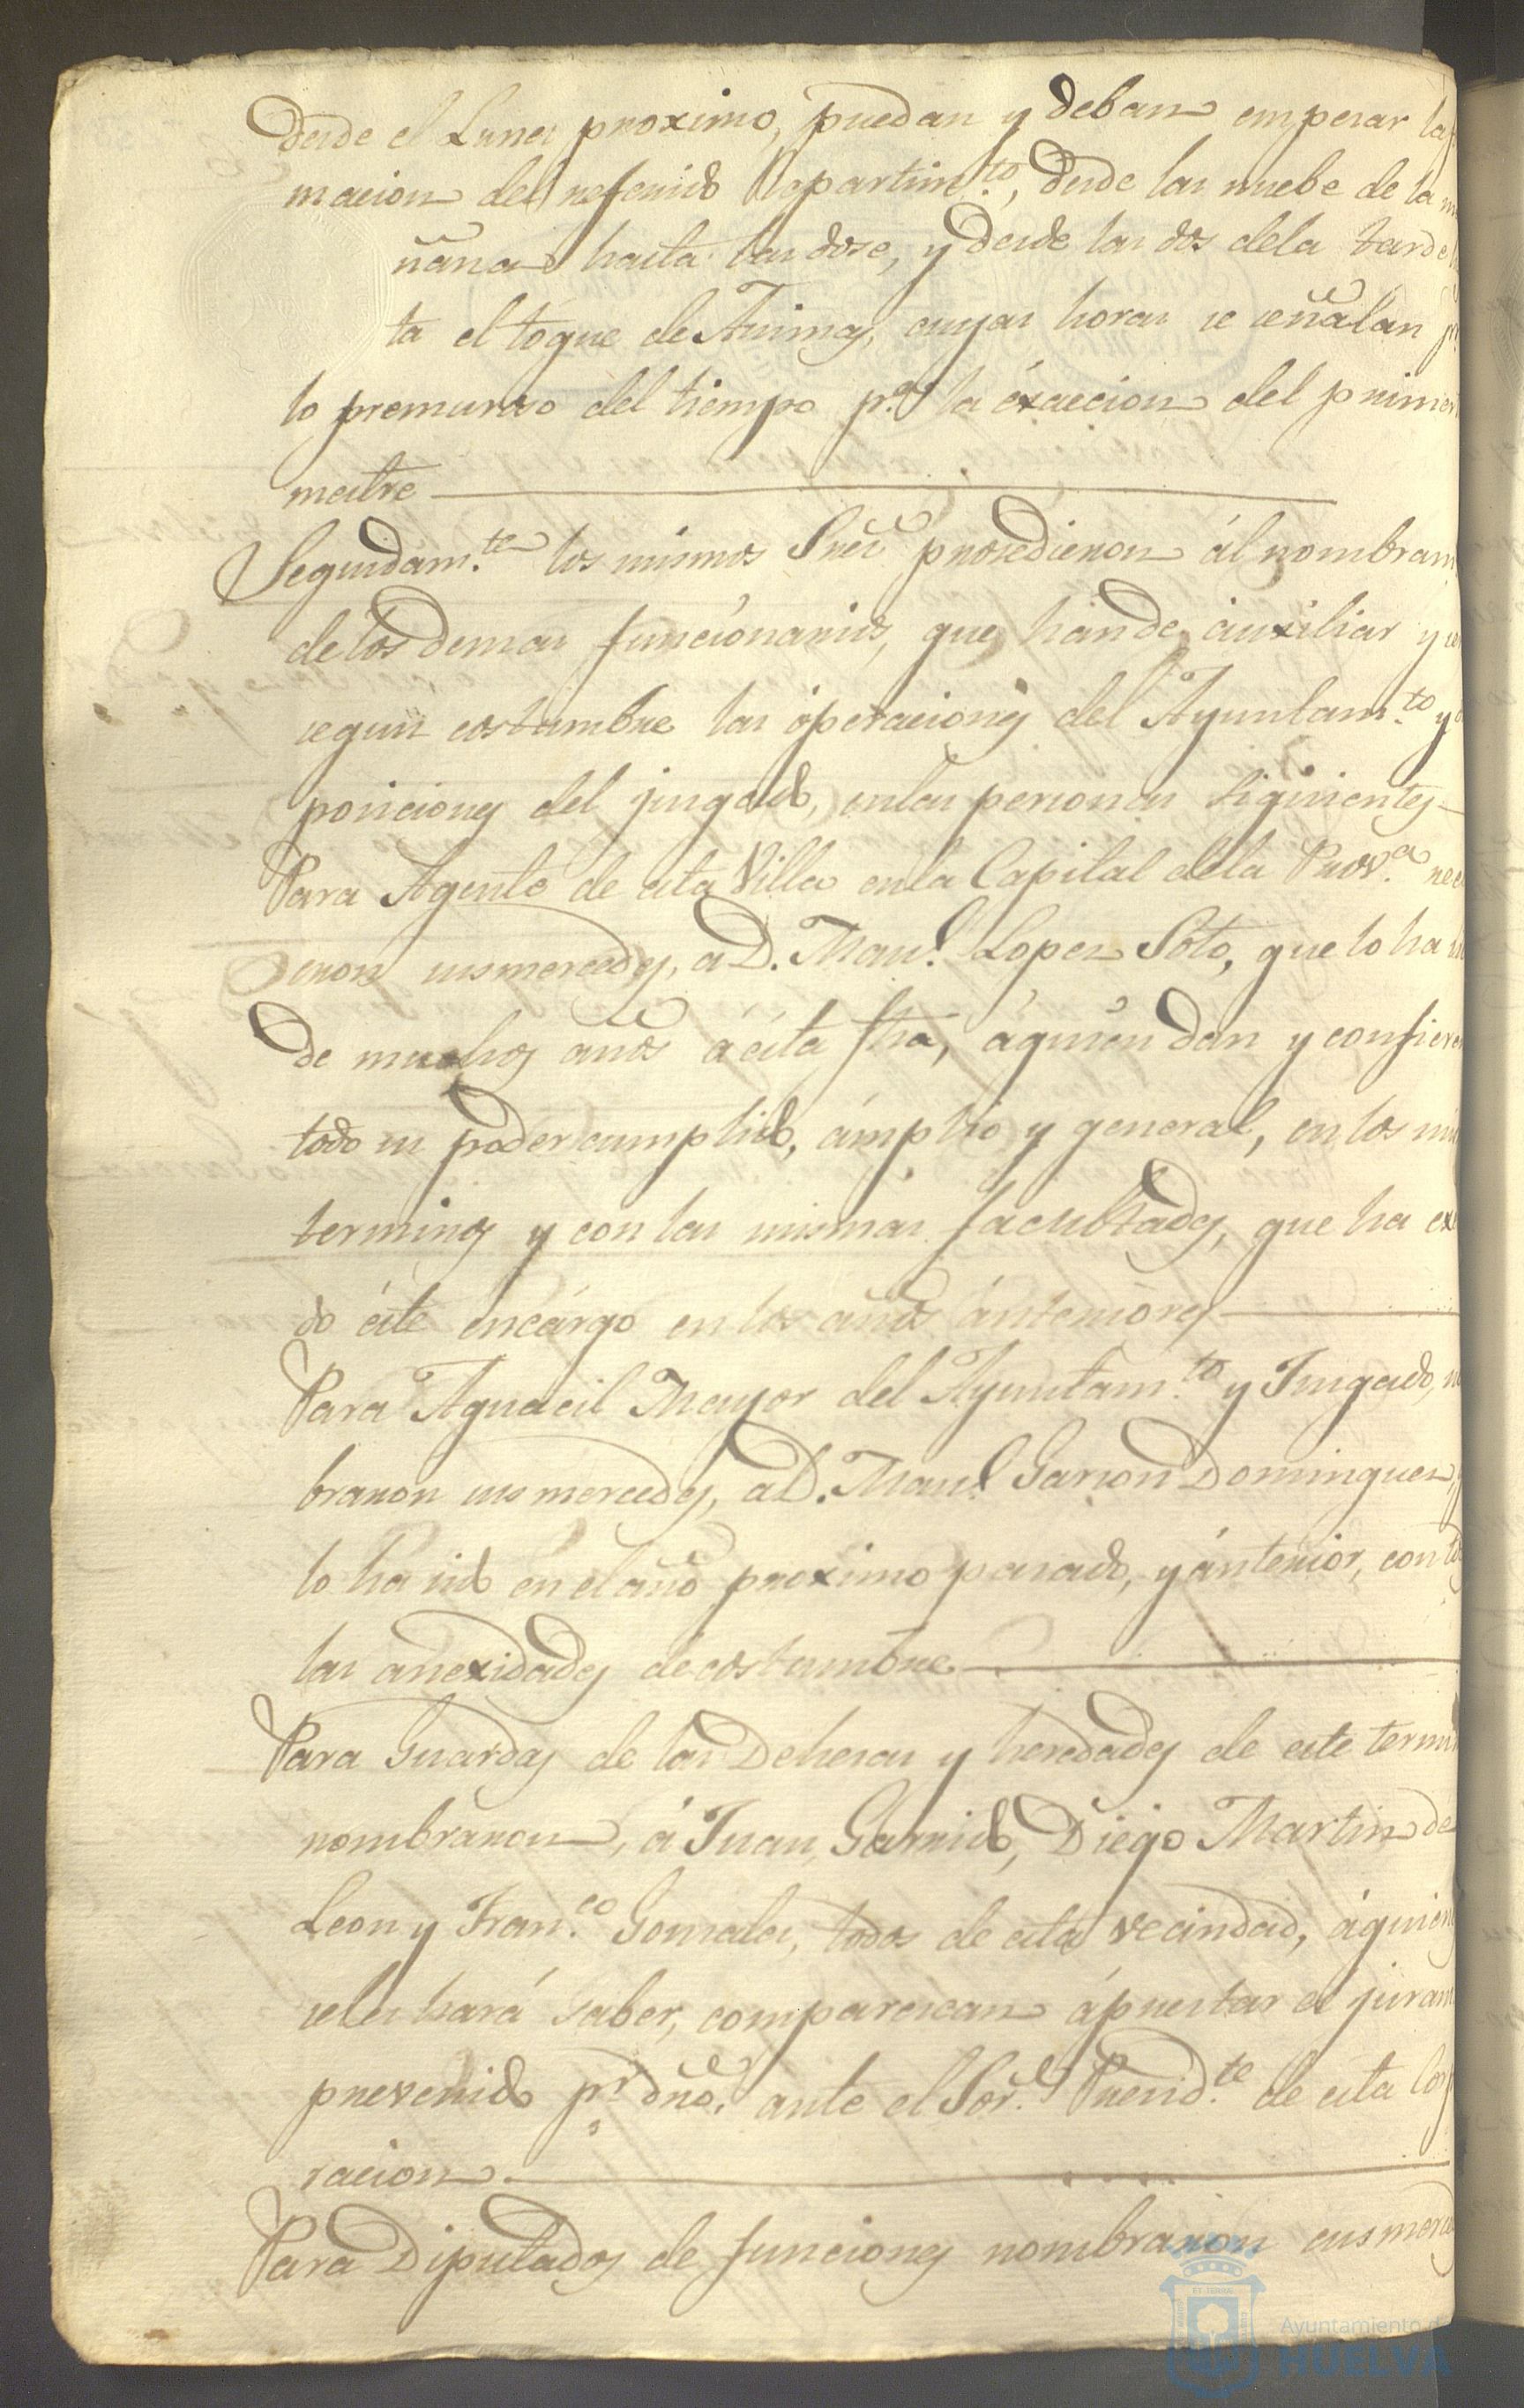 desde el Lunes proximo, puedan y deban empesar la
macion del referido Repartim.to, desde las nuebe de la
ñana hasta las dose, y desde las dos dela tarde
ta el toque de Animas, cuyas horas se señalan p.r
lo premuroso del tiempo p.a la éxaccion del primer
mestre
Seguidam.te los mismos Sres prosedieron ál nombram
delos demas funcionarios, que hande auxiliar y
segun costumbre las óperaciones del Ayuntam.to y
posiciones del jusgado, enlas personas siguientes
Para Agente de esta Villa enla Capital dela Prov.a
eron susmercedes, a D. Man.l Lopez Soto, que lo ha
de muchos años á ésta fha, áquien dan y confieren
todo su poder cumplido, ámplio y general, en los
terminos y con las mismas facultades, que ha
do éste encárgo en los años ánteriores
Para Aguacil Mayor del Ayuntam.to y Jusgado,
braron susmercedes, a D. Man.l Garzon Dominguez,
lo ha sido en el año proximo pasado, y ánterior, con
las anexidades de costumbre
Para Guardas de las Dehesas y heredades de este
nombraron, á Juan Garrido, Diego Martin de
Leon y Fran.co Gonzales, todos de esta vecindad, áquienes
seles hará saber, comparescan áprestar el
prevenido p.r dro. ante el Sor. Presid.te de esta
racion.
Para Diputados de funciones nombraron
Ayuntamiento de
HUELVA